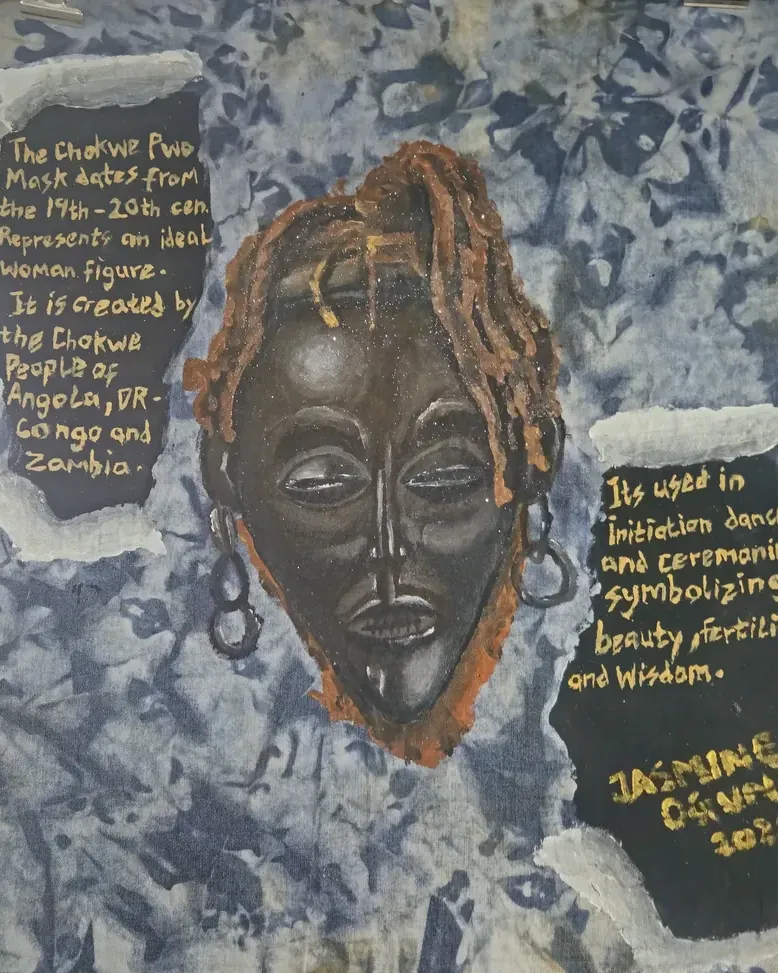 The Chokwe Pwo
Mask dates from
the 19th-20th cen.
Represents an ideal
woman figure.
It is created by
the Chokwe
People of
Angola, DR-
Congo and
Zambia.
Its used in
initiation danc
and ceremoni
symbolizing
beauty, fertili
and Wisdom.
JASMINE